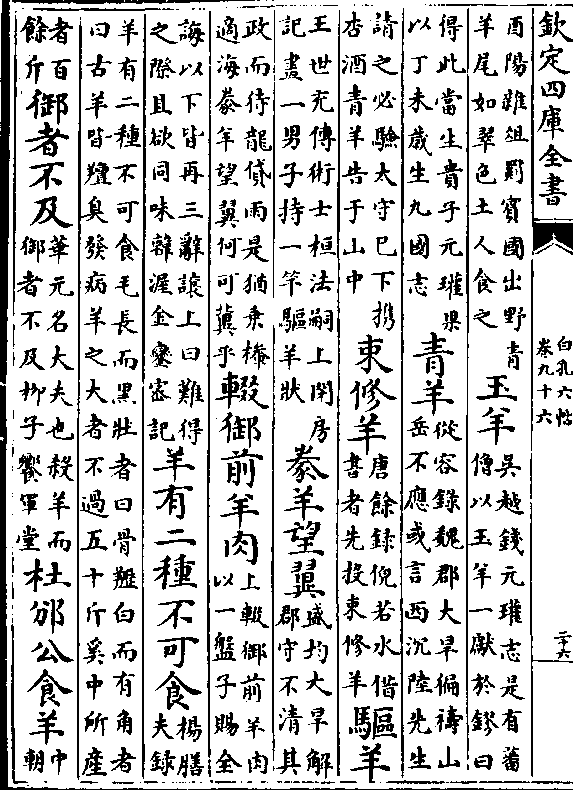 欽定四庫全書
白孔六帖
卷九十六
二十六
酉陽雜俎罽賓國出野青
羊尾如翠色土人食之
玉羊
吳越錢元瓘志是有蕃
僧以玉羊一獻於鏐曰
得此當生貴子元瓘果
以丁未歲生九國志
青羊
從容錄魏郡大旱徧禱山
岳不應或言西沉陸先生
請之必驗太守已下携
杏酒青羊告于山中
束修羊
唐餘錄倪若水借
書者先投束修羊
驅羊
王世充傳術士桓法嗣上閉房
記畫一男子持一竿驅羊狀
豢羊望翼
盛均大旱解
郡守不清其
政而待龍貸雨是猶乘桴
適海豢羊望翼何可冀乎
輟御前羊肉
上輟御前羊肉
以一盤子賜全
誨以下皆再三辭讓上曰難得
之際且欲同味韓渥金鑾密記
羊有二種不可食
楊膳
夫錄
羊有二種不可食毛長而黑壯者曰骨䍽白而有角者
曰古羊皆羶臭發病羊之大者不過五十斤奚中所產
者百
餘斤
御者不及
華元名大夫也殺羊而
御者不及柳子饗軍堂
杜邠公食羊
中
朝